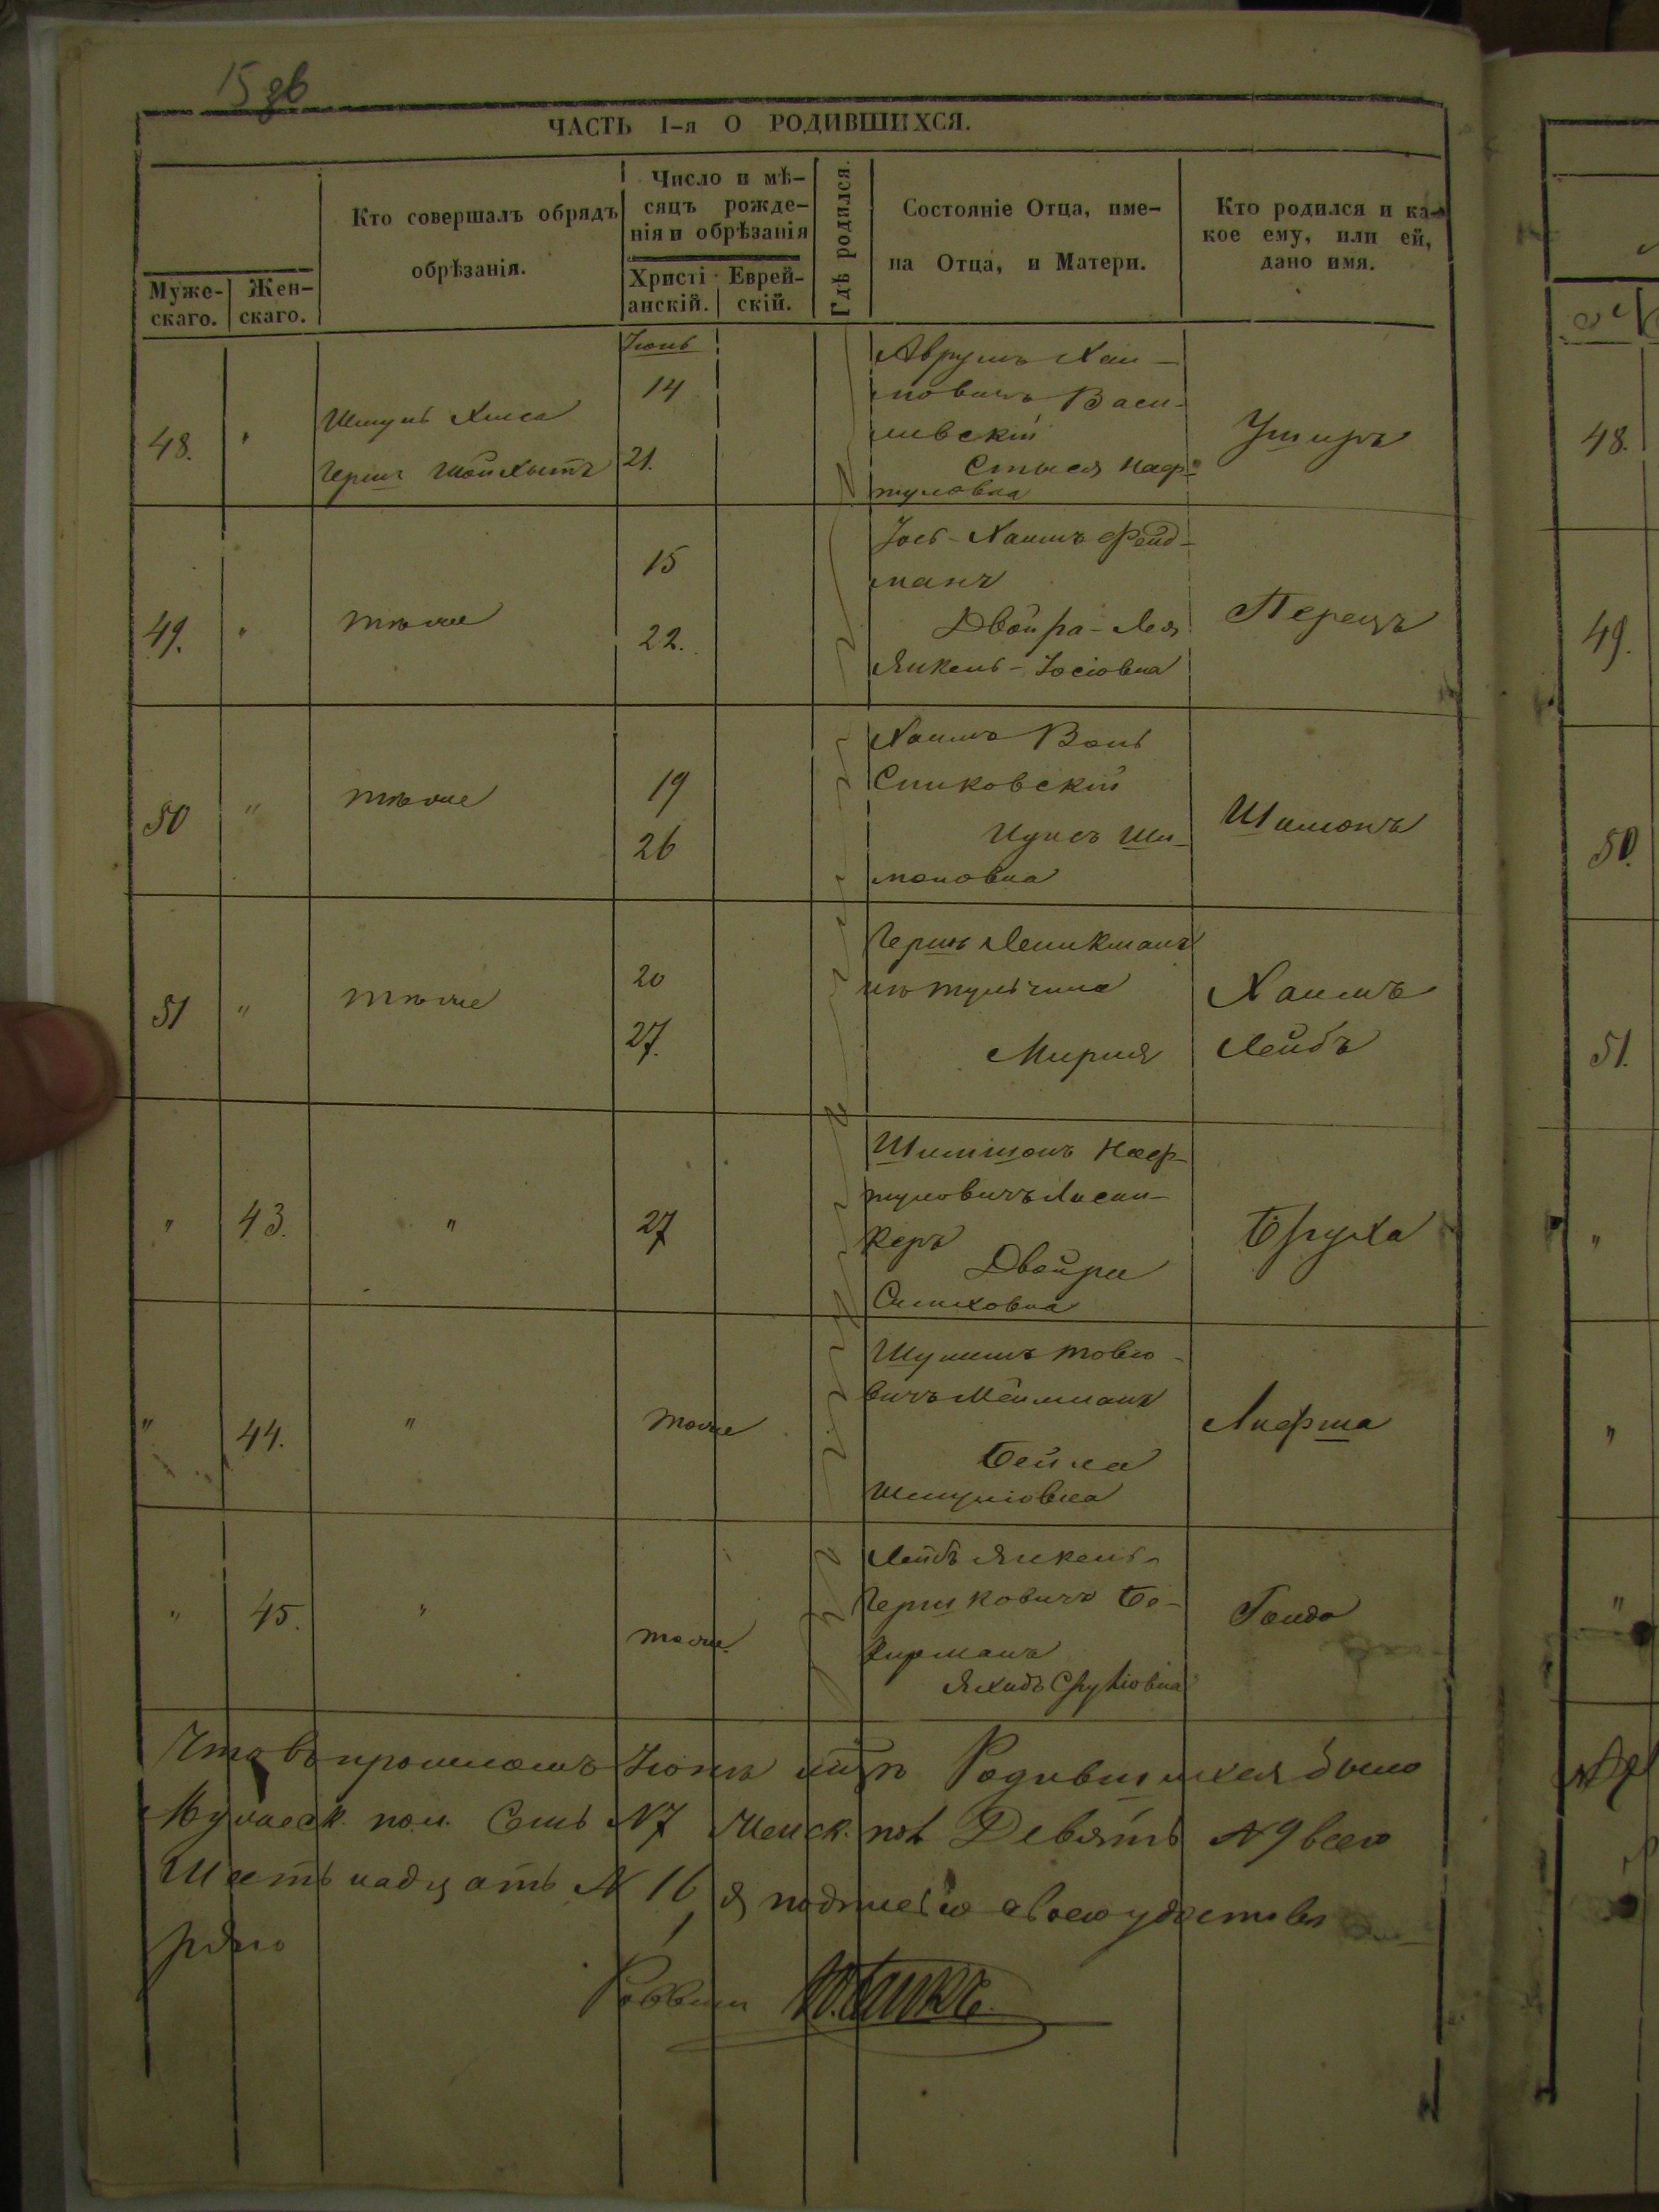 15 зв
ЧАСТЬ I-я О РОДИВШИХСЯ.
Муже-
скаго.
Жен-
скаго.
Кто совершалъ обрядъ
обрѣзанія.
Число и мѣ-
сяцъ рожде-
нія и обрѣзанія
Христі
анскій.
Еврей-
скій.
Гдѣ родился.
Состояніе Отца, име-
на Отца, и Матери.
Кто родился и ка-
кое ему, или ей,
дано имя.
48.
"
Герш
Іюнь
14
21.
Аврумъ Хаи-
мовичъ Васи-
ливскій
Стыся Наф-
туловна
Ушеръ
49.
"
тѣже
15
22.
Іось-Хаимъ Фейд-
манъ
Двойра-Лея
Янкель-Іосіовна
Перецъ
50
"
тѣже
19
26
Хаимъ Воль
Спиковскій
Идись Ши-
моновна
Шимонъ
51
"
тѣже
20
27.
Гершъ
Мирия
Хаимъ
Лейбъ
"
43.
"
27
Шимшонъ Наф-
туловичъ
керъ
Двойра
Симховна
Бруха
"
44.
"
тоже
Шулимъ Товіо-
вичъ
Бейла
Шмуліовна
Лифша
"
45.
"
тоже
Лейбъ Янкель-
Гершковичъ Бе-
керманъ
Сруліовна
Гольда
Что въ прошломъ Іюнѣ мцѣ Родившихся было
Мужеск. пол. Семь N 7 Женск. пол Девять N 9 всего
Шестьнадцать N 16 я подписью своею удостовѣ
ряю
Раввинъ
48.
49.
50.
51.
"
"
"